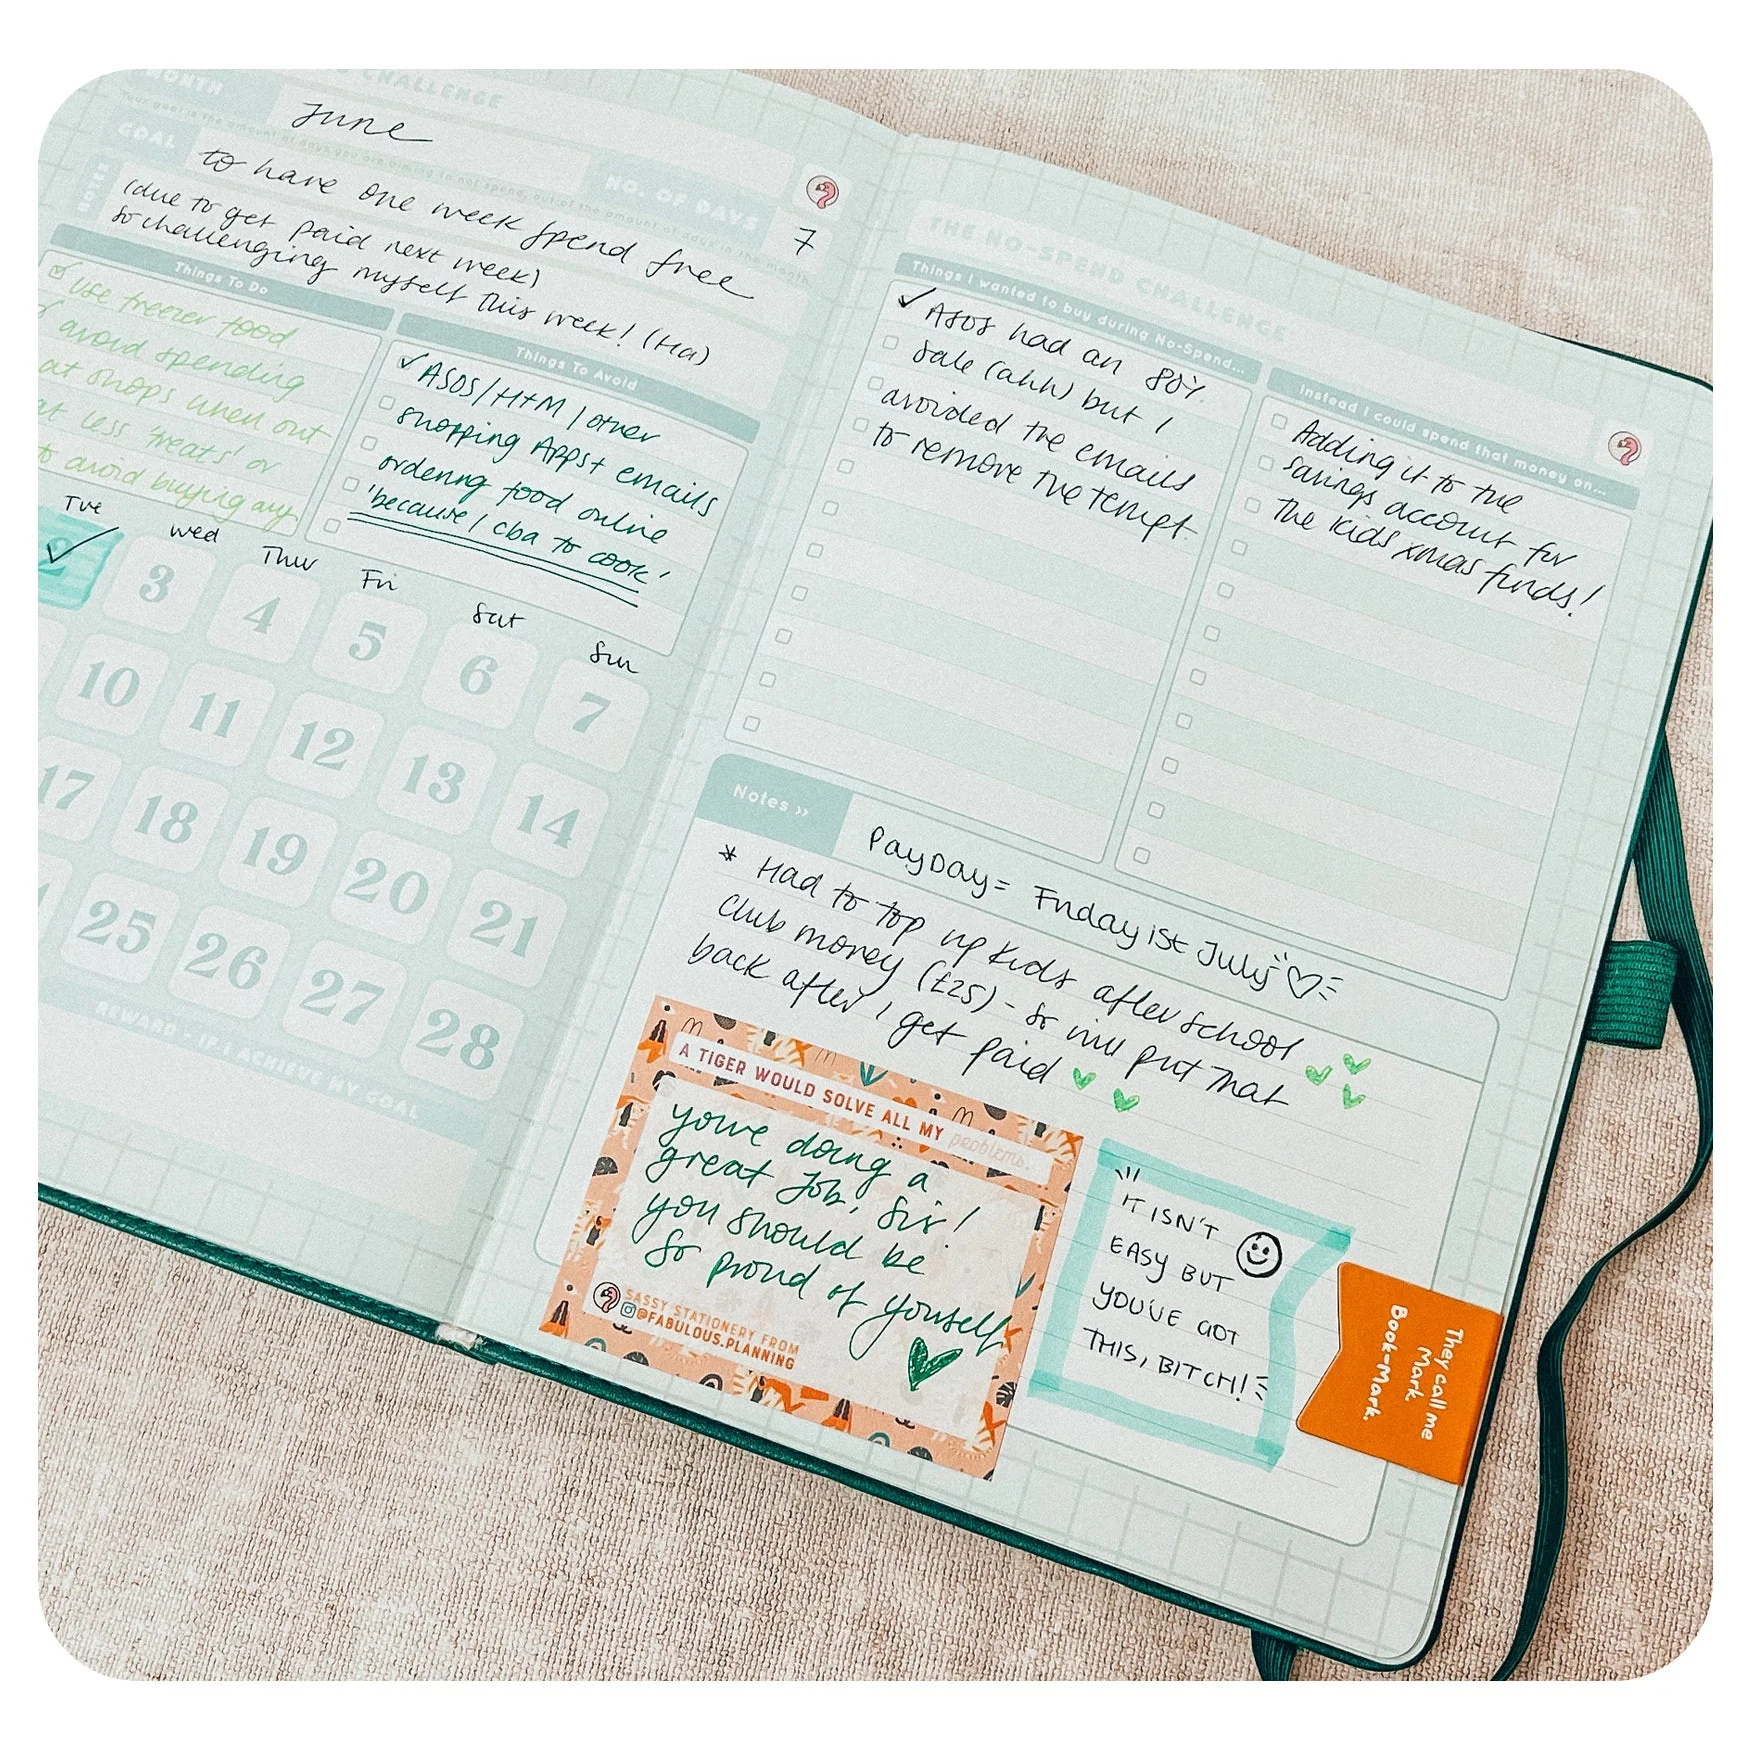 CHALLENGE
MONTH
June
Your goal is the amount of days you are aiming to not spend, out of the amount
GOAL
to have one week spend free
NO. OF DAYS
7
NOTES
(due to get paid next week)
so challenging myself this week! (Ha)
Things To Do
use freezer food
avoid spending
at shops when out
at less 'treats' or
to avoid buying any
Things To Avoid
ASOS/H+M/other
shopping Apps + emails
ordering food online
'because I cba to cook'
Tue
Wed
Thur
Fri
Sat
Sun
2 3 4 5 6 7
10 11 12 13 14
17 18 19 20 21
25 26 27 28
REWARD - IF I ACHIEVE MY GOAL
THE NO-SPEND CHALLENGE
Things I wanted to buy during No-Spend...
ASOS had an 80%
sale (ahh) but I
avoided the emails
to remove the tempt.
Instead I could spend that money on...
Adding it to the
savings account for
the kids xmas funds!
Notes >>
PayDay = Friday 1st July
* Had to top up kids after school
club money (£25) - so will put that
back after I get paid
A TIGER WOULD SOLVE ALL MY problems.
youre doing a
great Job, Sir!
you should be
so proud of yourself
SASSY STATIONERY FROM
@FABULOUS.PLANNING
IT ISN'T
EASY BUT
YOU'VE GOT
THIS, BITCH!
They call me
Mark.
Book-Mark.